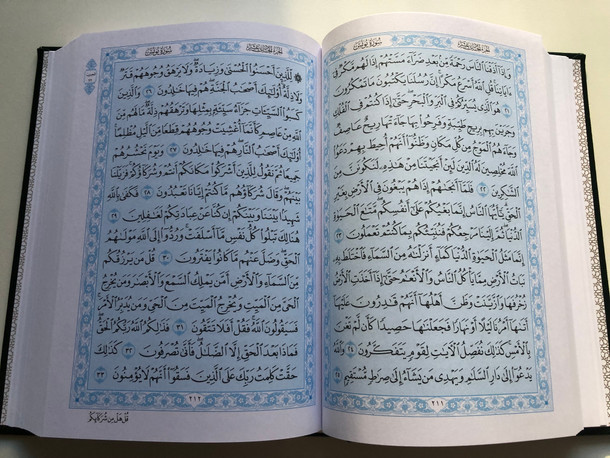 الجزء الحادي عشر
سورة يونس
وَإِذَآ أَذَقْنَا ٱلنَّاسَ رَحْمَةً مِّنۢ بَعْدِ ضَرَّآءَ مَسَّتْهُمْ إِذَا لَهُم مَّكْرٌ فِىٓ
ءَايَاتِنَا قُلِ ٱللَّهُ أَسْرَعُ مَكْرًا إِنَّ رُسُلَنَا يَكْتُبُونَ مَا تَمْكُرُونَ
٢١ هُوَ ٱلَّذِى يُسَيِّرُكُمْ فِى ٱلْبَرِّ وَٱلْبَحْرِ حَتَّىٰٓ إِذَا كُنتُمْ فِى ٱلْفُلْكِ
وَجَرَيْنَ بِهِم بِرِيحٍ طَيِّبَةٍ وَفَرِحُوا۟ بِهَا جَآءَتْهَا رِيحٌ عَاصِفٌ
وَجَآءَهُمُ ٱلْمَوْجُ مِن كُلِّ مَكَانٍ وَظَنُّوٓا۟ أَنَّهُمْ أُحِيطَ بِهِمْ دَعَوُا۟
ٱللَّهَ مُخْلِصِينَ لَهُ ٱلدِّينَ لَئِنْ أَنجَيْتَنَا مِنْ هَٰذِهِۦ لَنَكُونَنَّ مِنَ
ٱلشَّٰكِرِينَ ٢٢ فَلَمَّآ أَنجَىٰهُمْ إِذَا هُمْ يَبْغُونَ فِى ٱلْأَرْضِ بِغَيْرِ
ٱلْحَقِّ يَٰٓأَيُّهَا ٱلنَّاسُ إِنَّمَا بَغْيُكُمْ عَلَىٰٓ أَنفُسِكُم مَّتَٰعَ ٱلْحَيَوٰةِ
ٱلدُّنْيَا ثُمَّ إِلَيْنَا مَرْجِعُكُمْ فَنُنَبِّئُكُم بِمَا كُنتُمْ تَعْمَلُونَ ٢٣
إِنَّمَا مَثَلُ ٱلْحَيَوٰةِ ٱلدُّنْيَا كَمَآءٍ أَنزَلْنَٰهُ مِنَ ٱلسَّمَآءِ فَٱخْتَلَطَ بِهِۦ
نَبَاتُ ٱلْأَرْضِ مِمَّا يَأْكُلُ ٱلنَّاسُ وَٱلْأَنْعَٰمُ حَتَّىٰٓ إِذَآ أَخَذَتِ ٱلْأَرْضُ
زُخْرُفَهَا وَٱزَّيَّنَتْ وَظَنَّ أَهْلُهَآ أَنَّهُمْ قَٰدِرُونَ عَلَيْهَآ
أَتَىٰهَآ أَمْرُنَا لَيْلًا أَوْ نَهَارًا فَجَعَلْنَٰهَا حَصِيدًا كَأَن لَّمْ تَغْنَ
بِٱلْأَمْسِ كَذَٰلِكَ نُفَصِّلُ ٱلْءَايَٰتِ لِقَوْمٍ يَتَفَكَّرُونَ ٢٤ وَٱللَّهُ
يَدْعُوٓا۟ إِلَىٰ دَارِ ٱلسَّلَٰمِ وَيَهْدِى مَن يَشَآءُ إِلَىٰ صِرَٰطٍ مُّسْتَقِيمٍ ٢٥
٢١١
الجزء الحادي عشر
سورة يونس
۞ لِّلَّذِينَ أَحْسَنُوا۟ ٱلْحُسْنَىٰ وَزِيَادَةٌ وَلَا يَرْهَقُ وُجُوهَهُمْ قَتَرٌ
وَلَا ذِلَّةٌ أُو۟لَٰٓئِكَ أَصْحَٰبُ ٱلْجَنَّةِ هُمْ فِيهَا خَٰلِدُونَ ٢٦ وَٱلَّذِينَ
كَسَبُوا۟ ٱلسَّيِّـَٔاتِ جَزَآءُ سَيِّئَةٍۭ بِمِثْلِهَا وَتَرْهَقُهُمْ ذِلَّةٌ مَّا لَهُم مِّنَ
ٱللَّهِ مِنْ عَاصِمٍ كَأَنَّمَآ أُغْشِيَتْ وُجُوهُهُمْ قِطَعًا مِّنَ ٱلَّيْلِ مُظْلِمًا
أُو۟لَٰٓئِكَ أَصْحَٰبُ ٱلنَّارِ هُمْ فِيهَا خَٰلِدُونَ ٢٧ وَيَوْمَ نَحْشُرُهُمْ
جَمِيعًا ثُمَّ نَقُولُ لِلَّذِينَ أَشْرَكُوا۟ مَكَانَكُمْ أَنتُمْ وَشُرَكَآؤُكُمْ فَزَيَّلْنَا
بَيْنَهُمْ وَقَالَ شُرَكَآؤُهُم مَّا كُنتُمْ إِيَّانَا تَعْبُدُونَ ٢٨ فَكَفَىٰ بِٱللَّهِ
شَهِيدًۢا بَيْنَنَا وَبَيْنَكُمْ إِن كُنَّا عَنْ عِبَادَتِكُمْ لَغَٰفِلِينَ ٢٩
هُنَالِكَ تَبْلُوا۟ كُلُّ نَفْسٍ مَّآ أَسْلَفَتْ وَرُدُّوٓا۟ إِلَى ٱللَّهِ مَوْلَىٰهُمُ
ٱلْحَقِّ وَضَلَّ عَنْهُم مَّا كَانُوا۟ يَفْتَرُونَ ٣٠ قُلْ مَن يَرْزُقُكُم
مِّنَ ٱلسَّمَآءِ وَٱلْأَرْضِ أَمَّن يَمْلِكُ ٱلسَّمْعَ وَٱلْأَبْصَٰرَ وَمَن يُخْرِجُ
ٱلْحَىَّ مِنَ ٱلْمَيِّتِ وَيُخْرِجُ ٱلْمَيِّتَ مِنَ ٱلْحَىِّ وَمَن يُدَبِّرُ ٱلْأَمْرَ
فَسَيَقُولُونَ ٱللَّهُ فَقُلْ أَفَلَا تَتَّقُونَ ٣١ فَذَٰلِكُمُ ٱللَّهُ رَبُّكُمُ ٱلْحَقُّ
فَمَاذَا بَعْدَ ٱلْحَقِّ إِلَّا ٱلضَّلَٰلُ فَأَنَّىٰ تُصْرَفُونَ ٣٢ كَذَٰلِكَ
حَقَّتْ كَلِمَتُ رَبِّكَ عَلَى ٱلَّذِينَ فَسَقُوٓا۟ أَنَّهُمْ لَا يُؤْمِنُونَ ٣٣
٢١٢
قُلْ هَلْ مِن شُرَكَآئِكُم